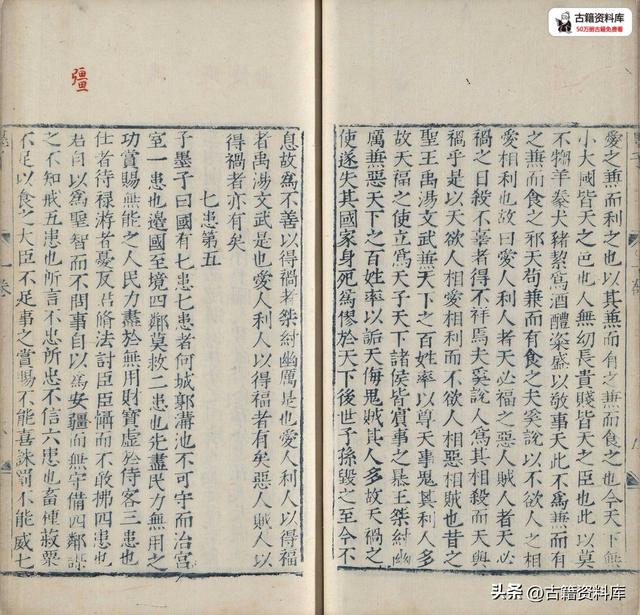 愛之兼而利之也以其兼而有之兼而食之也今天下無
小大國皆天之邑也人無幼長貴賤皆天之臣也此以莫
不犓羊豢犬豬絜爲酒醴粢盛以敬事天此不爲兼而有
之兼而食之邪天苟兼而有食之夫奚說以不欲人之相
愛相利也故曰愛人利人者天必福之惡人賊人者天必
禍之日殺不辜者得不祥焉夫奚說人爲其相殺而天與
禍乎是以天欲人相愛相利而不欲人相惡相賊也昔之
聖王禹湯文武兼天下之百姓率以尊天事鬼其利人多
故天福之使立爲天子天下諸侯皆賓事之暴王桀紂幽
厲兼惡天下之百姓率以詬天侮鬼賊其人多故天禍之
使遂失其國家身死爲僇於天下後世子孫毀之至今不
息故爲不善以得禍者桀紂幽厲是也愛人利人以得福
者禹湯文武是也愛人利人以得福者有矣惡人賊人以
得禍者亦有矣
七患第五
子墨子曰國有七患七患者何城郭溝池不可守而治宮
室一患也邊國至境四鄰莫救二患也先盡民力無用之
功賞賜無能之人民力盡於無用財寶虛於待客三患也
仕者待祿游者憂反君脩法討臣臣懾而不敢拂四患也
君自以爲聖智而不問事自以爲安疆而無守備四鄰謀
之不知戒五患也所言不忠所忠不信六患也畜種菽粟
不足以食之大臣不足事之賞賜不能喜誅罰不能威七
彊
古籍资料库
50万册古籍免费看
头条 @古籍资料库